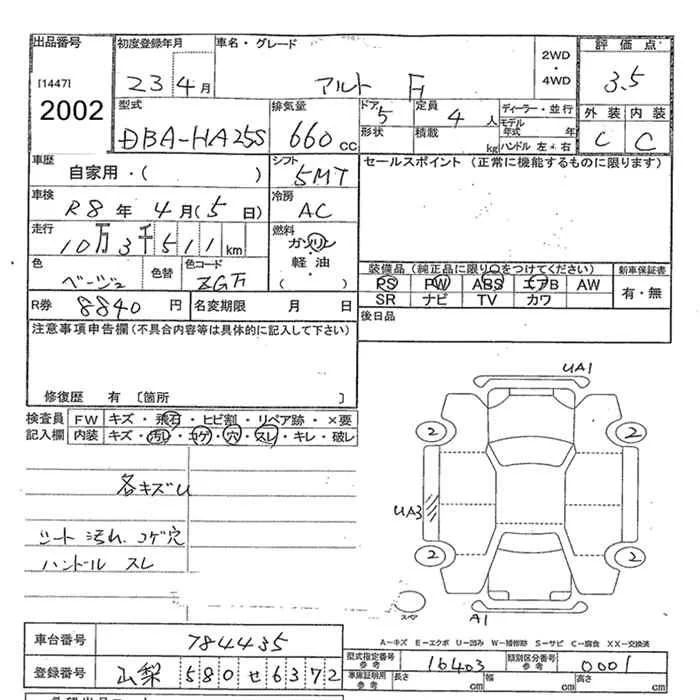 出品番号
[1447]
2002
初度登録年月
23年4月
車名・グレード
アルト F
2WD
・
4WD
評価点
3.5
外装 内装
C C
型式
DBA-HA25S
排気量
660 cc
ドア 5
形状
定員 4 人
積載 kg
ディーラー・並行
モデル年式 年
ハンドル 左・右
車歴
自家用・( )
シフト
5MT
セールスポイント (正常に機能するものに限ります)
車検
R8年 4月(5日)
冷房
AC
走行
10万3千511km
燃料
ガソリン
・
軽油
・
( )
色
ベージュ
色替
色コード
ZGF
装備品(純正品に限り○をつけてください)
PS PW ABS エアB AW
SR ナビ TV カワ
新車保証書
有・無
R券 8840円
名変期限 月 日
後日品
注意事項申告欄(不具合内容等は具体的に記入して下さい)
修復歴 有 [箇所 ]
検査員
記入欄
FW キズ・飛石・ヒビ割・リペア跡・×要
内装 キズ・汚れ・コゲ・穴・スレ・キレ・破レ
各キズU
シート 汚れ、コゲ穴
ハンドル スレ
UA1
2 2
UA3
2 2
スペア
A1
A-キズ E-エクボ U-凹み W-補修跡 S-サビ C-腐食 XX-交換済
車台番号 784435
登録番号 山梨 580 せ 6372
型式指定番号 参考 16403
類別区分番号 参考 0001
車庫証明用 参考 長さ cm 幅 cm 高さ cm